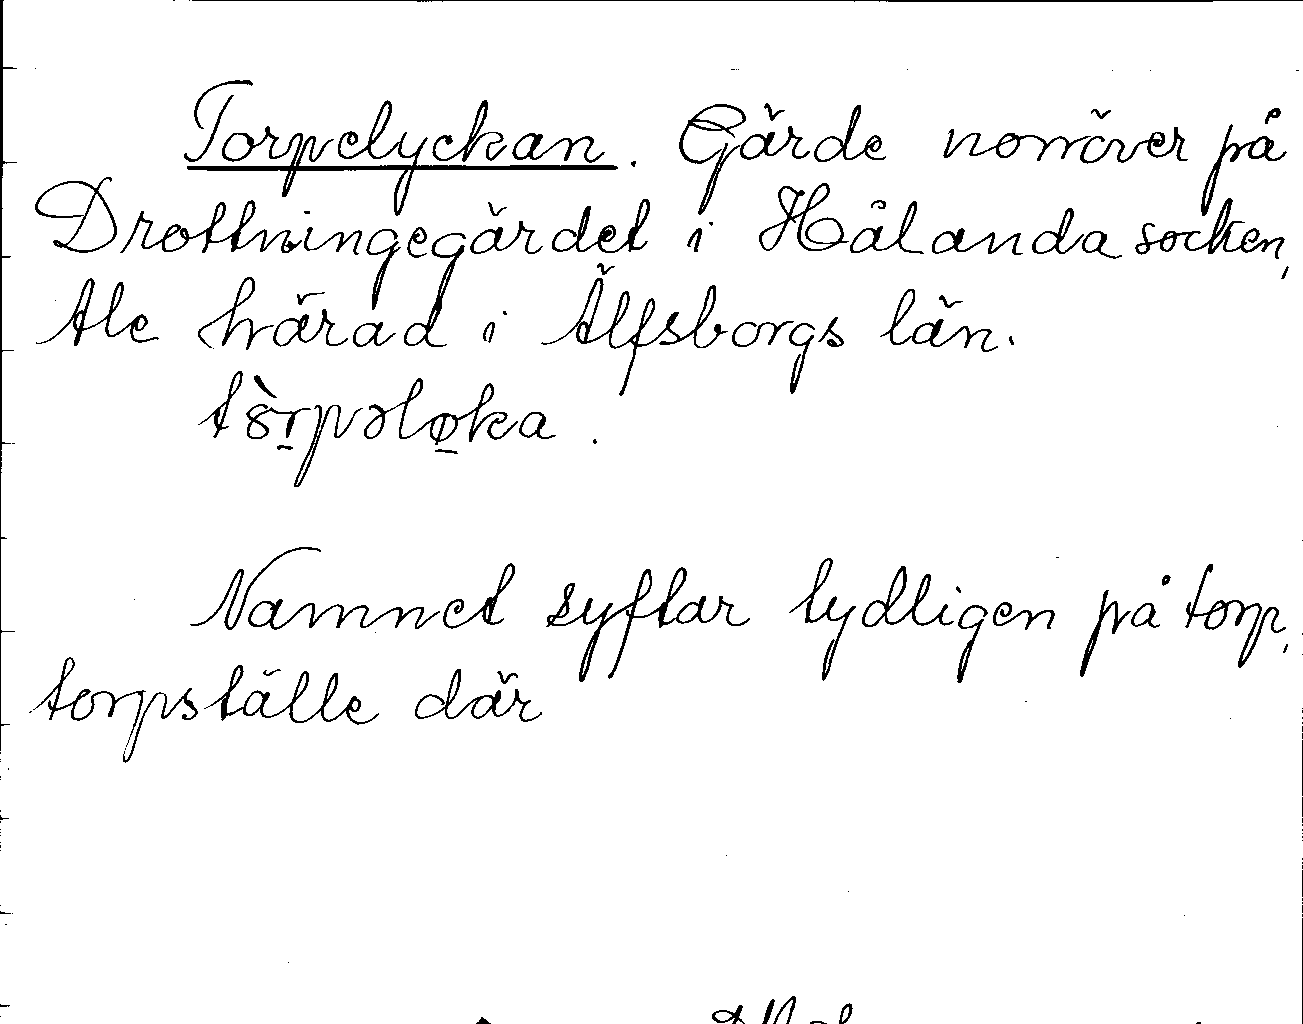 Torpelyckan. Gärde norröver på
Drottningegärdet i Hålanda socken,
Ale härad i Älfsborgs län.
tȣ̀r̠pəlø̠ka.
Namnet syftar tydligen på torp,
torpställe där